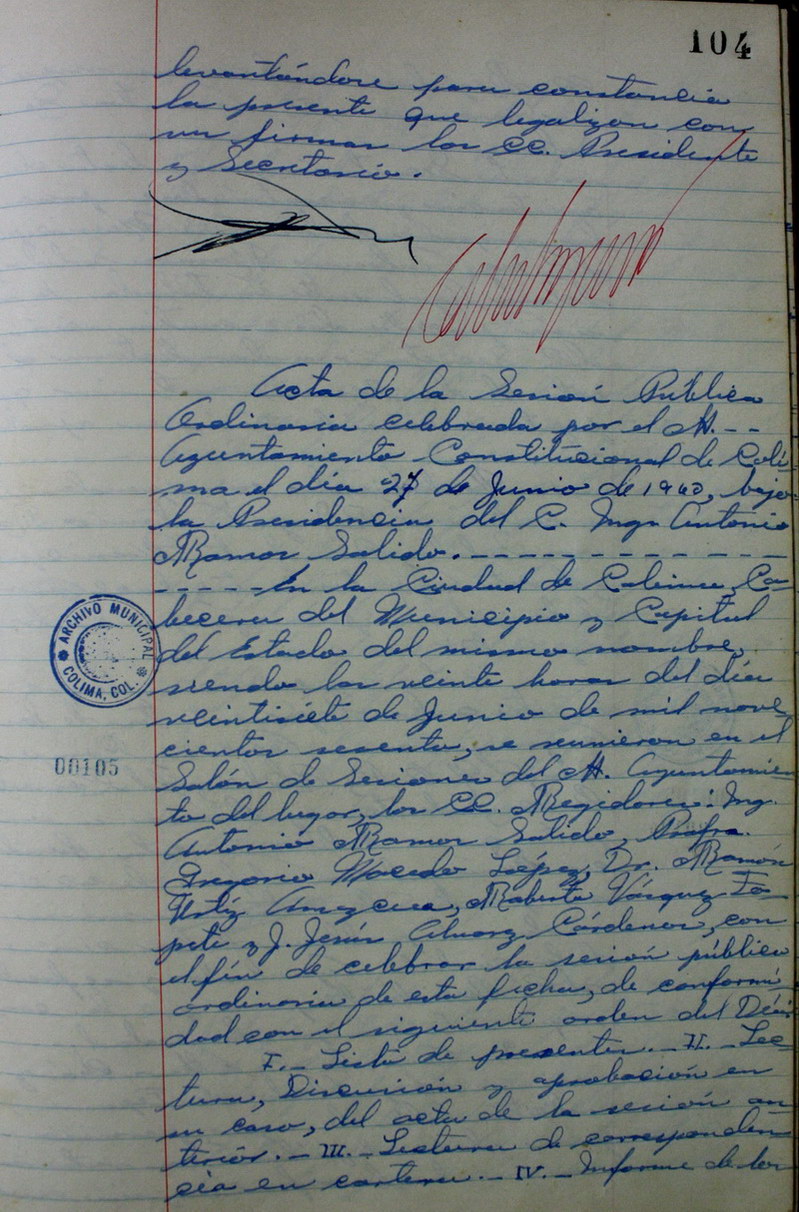 104
levantándose para constancia
la presente que legalizan con
su firma los CC. Presidente
y Secretario.
Acta de la Sesión Pública
Ordinaria celebrada por el H. --
Ayuntamiento Constitucional de Coli-
ma el día 27 de Junio de 1960, bajo
la Presidencia del C. Ingr. Antonio
Ramos Salido. - - - - - - - - - - - -
- - - - - En la Ciudad de Colima, Ca-
becera del Municipio y Capital
del Estado del mismo nombre,
siendo las veinte horas del día
veintisiete de Junio de mil nove-
cientos sesenta, se reunieron en el
Salón de Sesiones del H. Ayuntamien-
to del lugar, los CC. Regidores: Ing.
Antonio Ramos Salido, Profra.
Gregoria Macedo López, Dr. Ramón
Ortíz, Roberto Vásquez To-
pete y J. Jesús Alvarez Cárdenas, con
el fín de celebrar la sesión pública
ordinaria de esta fecha, de conformi-
dad con el siguiente orden del Día:
I.- Lista de presentes. - II. - Lec-
tura, Discusión y aprobación en
su caso, del acta de la sesión an-
terior. - III. - Lectura de corresponden-
cia en cartera. - IV. - Informe de los
ARCHIVO MUNICIPAL
COLIMA, COL.
00105